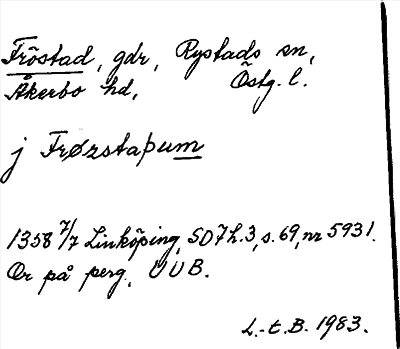 Fröstad, gdr, Rystads sn,
Åkerbo hd, Östg. l.
j Frøzstaþum
1358 7/7 Linköping, SD7h.3, s. 69, nr 5931.
Or på perg, UUB.
L.-t.B. 1983.